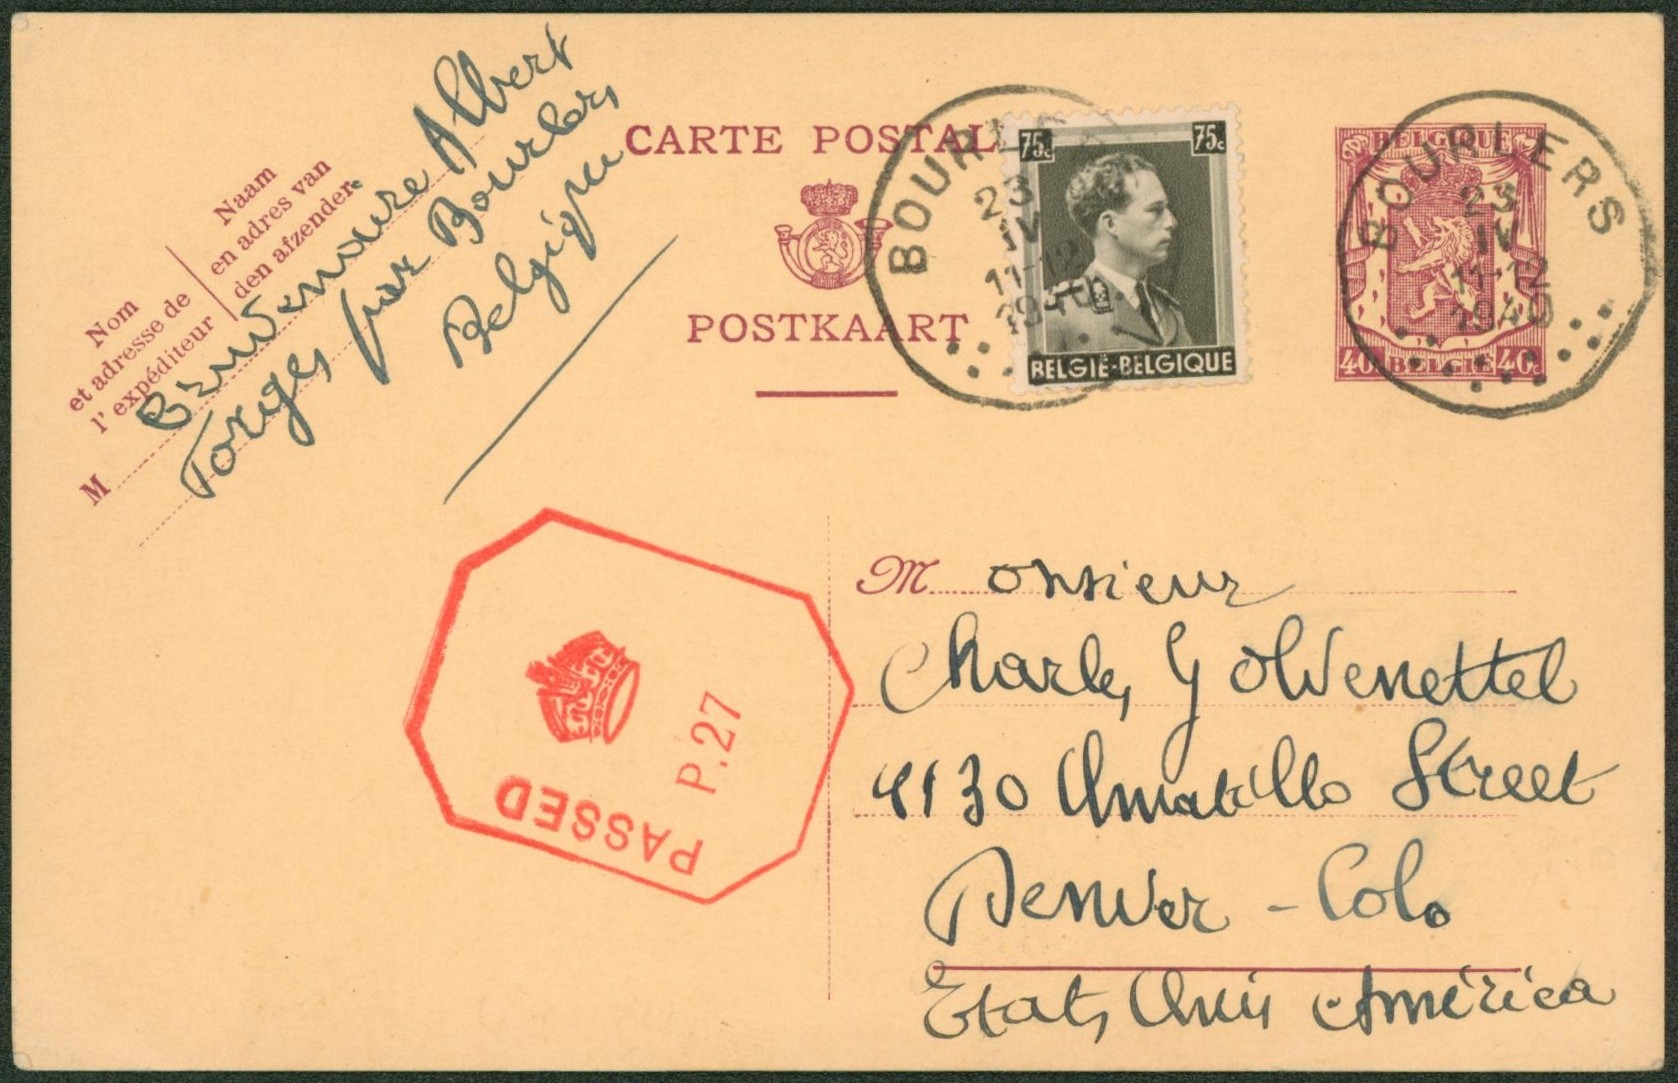 Naam
en adres van
den afzender.
Nom
et adresse de
l'expéditeur
M
Albert
Forges par Bourlers
Belgique
CARTE POSTALE
POSTKAART
BOURLERS
23
IV
11-12
1940
75c 75c
BELGIË-BELGIQUE
BELGIQUE
40c BELGIË 40c
BOURLERS
23
IV
11-12
1940
PASSED
P.27
Monsieur
Charles G
4130 Street
Denver - Colo
Etats Unis América